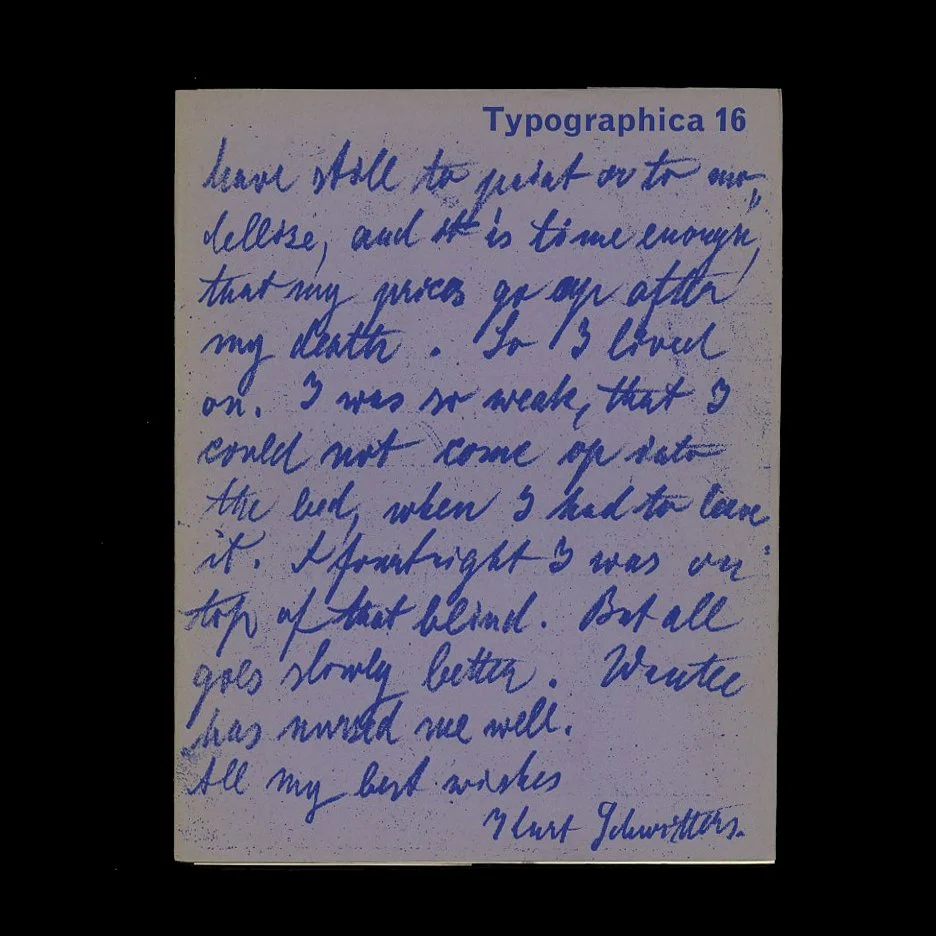 Typographica 16
have still to paint or to mo„
dellise, and it is time enough,
that my prices go up after
my death. So I lived
on. I was so weak, that I
could not come op into
the bed, when I had to leave
it. A fourtnight I was on
top of that blind. But all
goes slowly better. Wantee
has nursed me well.
All my best wishes
Kurt Schwitters.